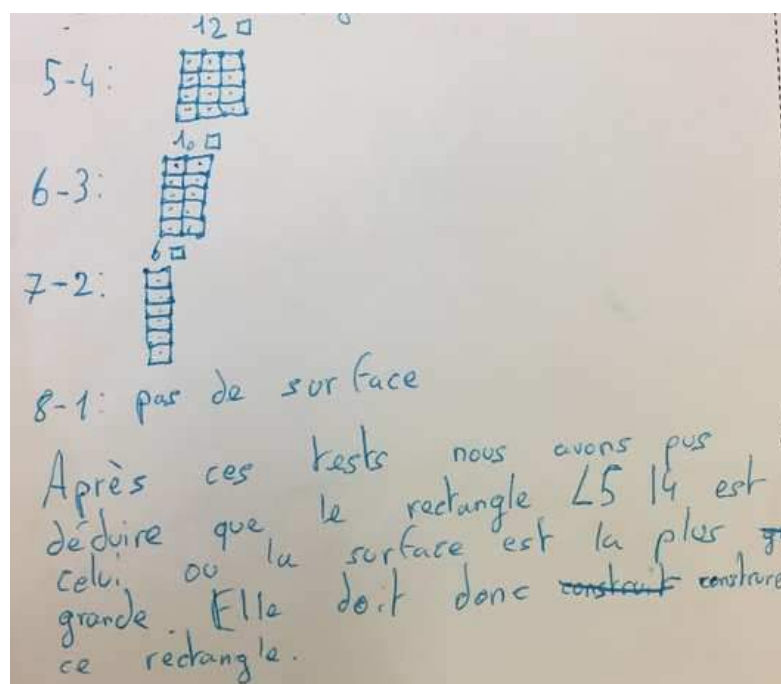 12 □
5-4:
10 □
6-3:
6 □
7-2:
8-1: pas de surface
Après ces tests nous avons pus
déduire que le rectangle L5 l4 est
celui ou la surface est la plus
grande. Elle doit donc construit construire
ce rectangle.